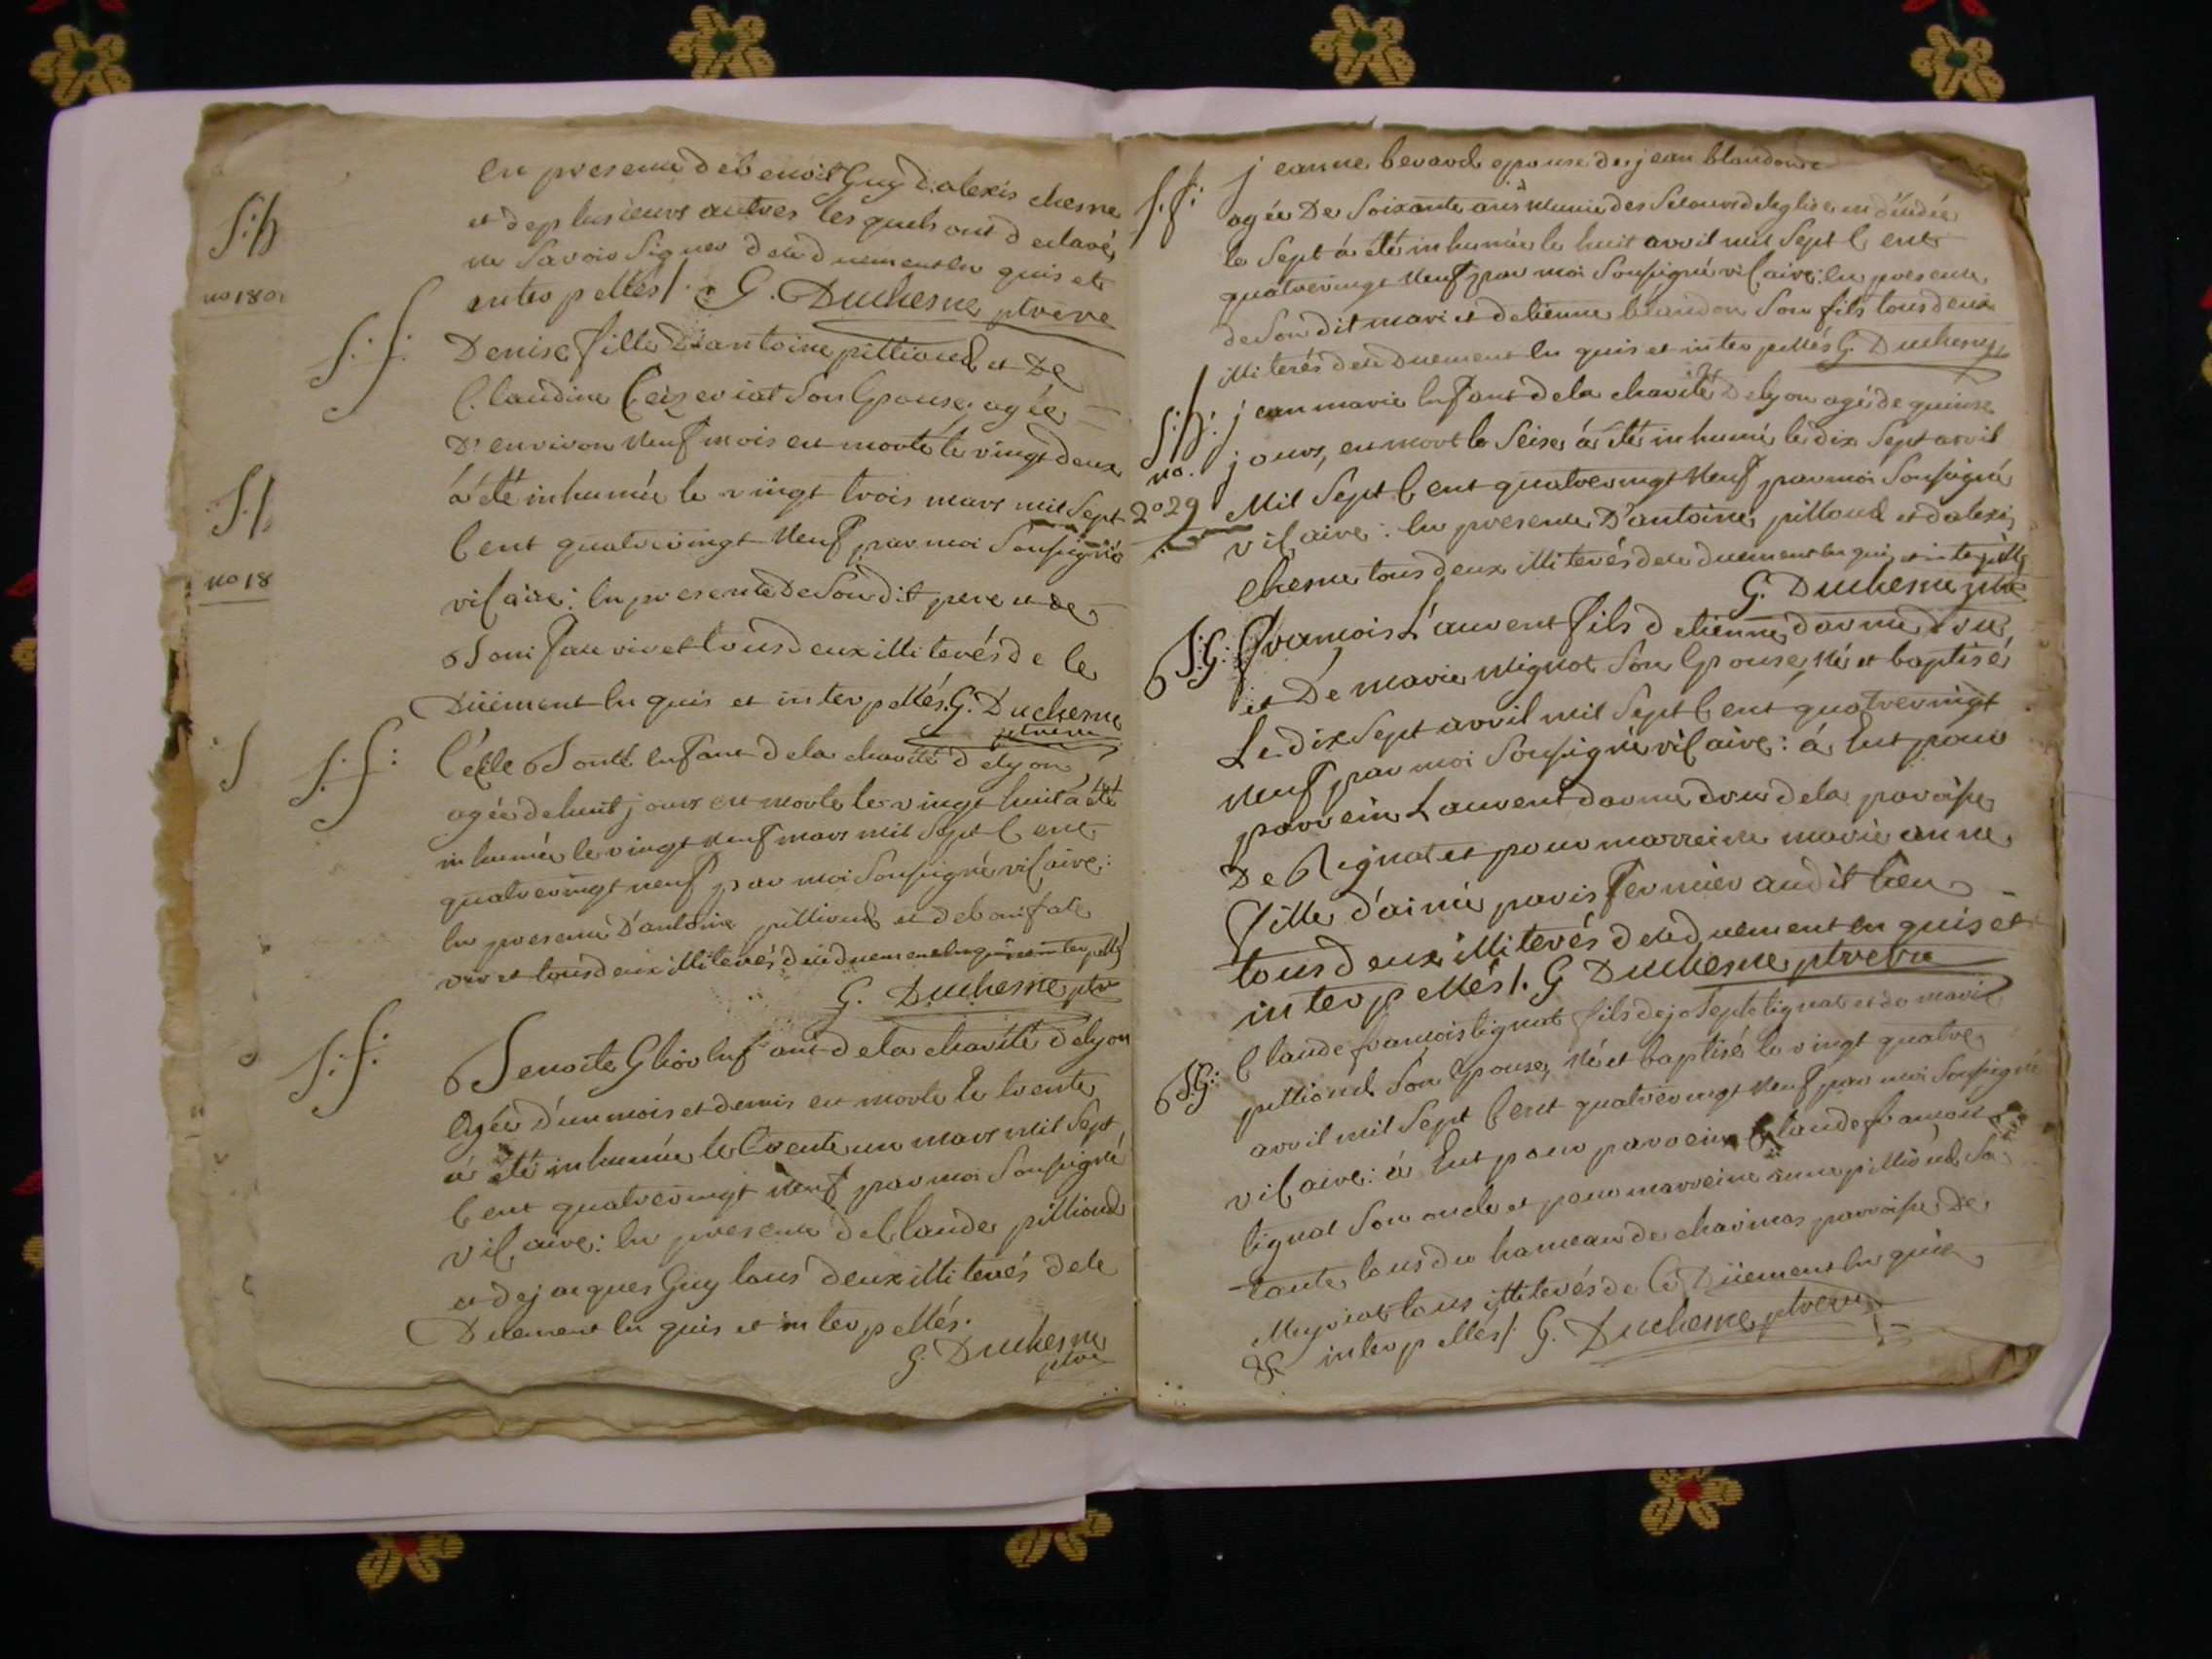 en presence de benoit Guy d'alexis chesne
S: h
et de plusieurs autres lesquels ont declaré
ne savoir signer de ce duement enquis et
no 180
interpellés /. G. Duchesne ptre
S: f: Denise fille d'antoine pilliond et De
Claudine Ceizeriat son Epouse, agée
D'environ neuf mois est morte le vingt deux
à été inhumée le vingt trois mars mil sept
cent quatrevingt neuf par moi soussigné
no 18
vicaire: en presence De son dit pere et de
tous deux illiterés de ce
Düement enquis et interpellés. G. Duchesne
ptre
S: f: enfant de la charité de lyon
agée de huit jours est morte le vingt huit à été
inhumée le vingt neuf mars mil sept cent
quatrevingt neuf par moi soussigné vicaire:
en presence D'antoine pilliond et de boniface
vivet tous deux illiterés de ce duement enquis et interpellés
G. Duchesne ptre
S: f: Benoite enfant de la charité de lyon
agée d'un mois et demis est morte le trente
à été inhumée le trente un mars mil sept
cent quatrevingt neuf par moi soussigné
vicaire: en presence de Claude pilliond
et de jacques Guy tous deux illiterés de ce
Duement enquis et interpellés.
G. Duchesne
ptre
S: f: jeanne bevard epouse de jean blandon
agée De soixante ans munie des secours de leglise
le sept à été inhumée le huit avril mil sept cent
quatrevingt neuf par moi soussigné vicaire: en presence
de son dit mari et detienne blandon son fils tous deux
illiterés de ce Duement enquis et interpellés G. Duchesne
S: h: jean marie enfant de la charité de lyon agé de quinze
jours, est mort le seize à été inhumé le dix sept avril
no. 2029 mil sept cent quatrevingt neuf par moi soussigné
vicaire: en presence D'antoine pilliond et d'alexis
chesne tous deux illiterés de ce duement enquis et interpellés
G. Duchesne ptre
B: G: francois Laurent fils detienne
et De marie mignot son Epouse, né et baptisé
Le dix sept avril mil sept cent quatrevingt
neuf par moi soussigné vicaire: à eut pour
parrein Laurent de la paroisse
De Rignat et pour marreine marie anne
fille d'aimé paris fermier audit lieu
tous deux illiterés de ce duement enquis et
interpellés /. G Duchesne ptre
B: G: Claude francois tignat fils de joseph tignat et de marie
pilliond son Epouse, né et baptisé le vingt quatre
avril mil sept cent quatrevingt neuf par moi soussigné
vicaire: à eut pour parrein Claude francois
tignat son oncle et pour marreine anne pilliond sa
tante, tous du hameau de charinas parroisse De
Meyriat tous illiterés de ce Düement enquis
& interpellés /. G. Duchesne ptre